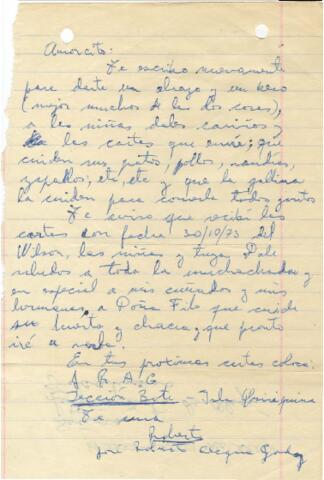 Amorcito:
Te escribo nuevamente
para darte un abrazo y un beso
(mejor muchos de las dos cosas),
a las niñas dales cariños y
las cartas que envié; que
cuiden sus gatos, pollos,
zapallos, etc, etc y que la gallina
la cuiden para comerla todos juntos
Te aviso que recibí las
cartas con fecha 30/10/73 del
Wilson, las niñas y tuya. Dale
saludos a toda la muchachada y
en especial a mis cuñados y mis
hermanas, a Doña Filo que cuide
su huerto y chacra, que pronto
iré a
En tus próximas cartas coloca:
Sección Bote - Isla Quiriquina
Te ama
Roberto
José Roberto